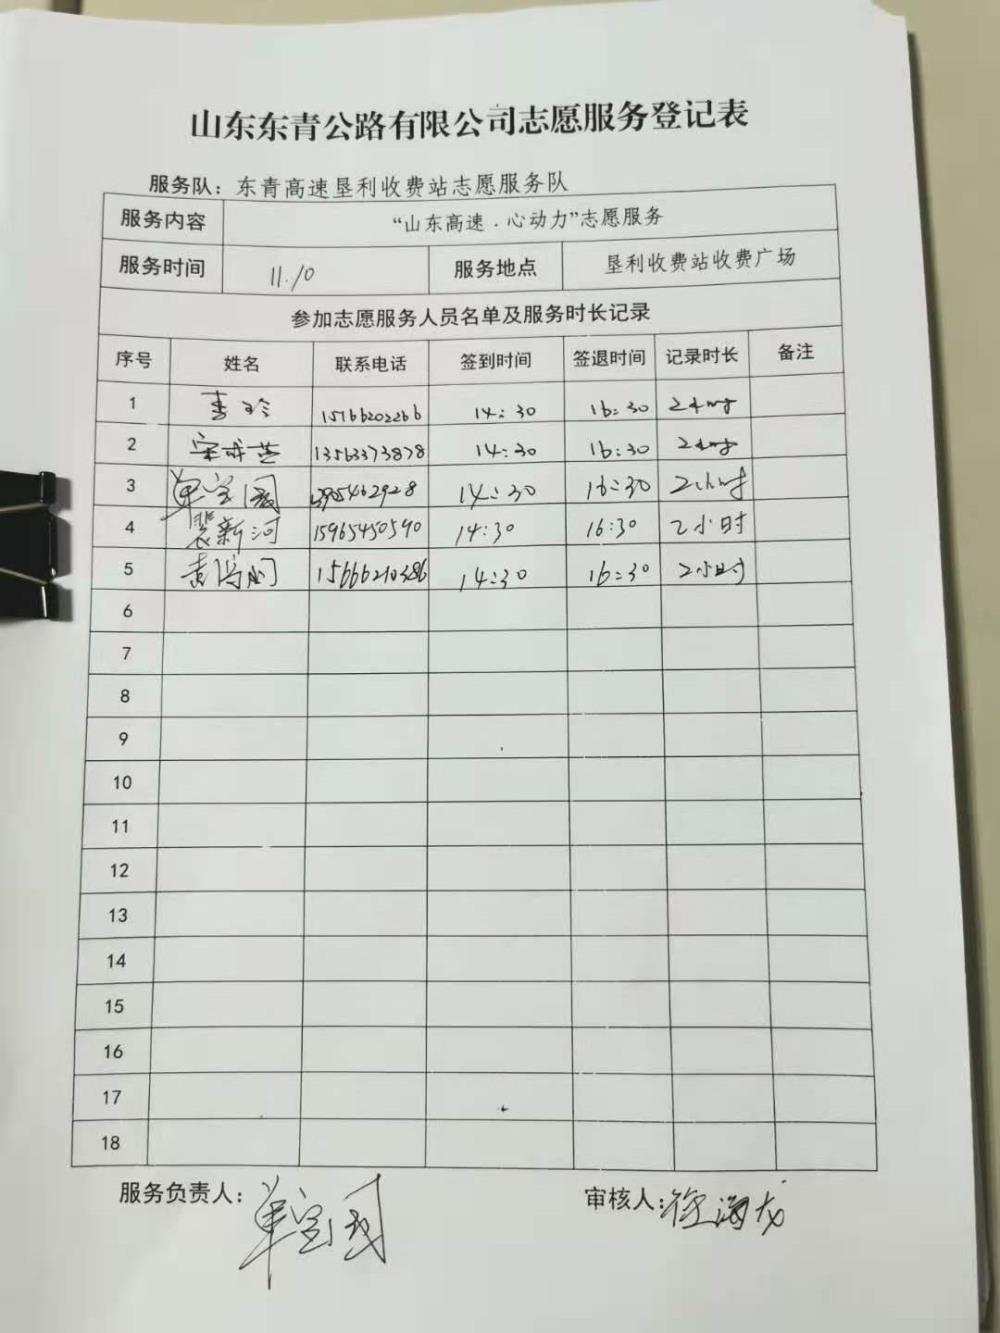 山东东青公路有限公司志愿服务登记表
服务队：东青高速垦利收费站志愿服务队
服务内容 “山东高速．心动力”志愿服务
服务时间 11.10 服务地点 垦利收费站收费广场
参加志愿服务人员名单及服务时长记录
序号 姓名 联系电话 签到时间 签退时间 记录时长 备注
1 15166202266 14:30 16:30 2小时
2 13563373878 14:30 16:30 2小时
3 单宝国 14:30 16:30 2小时
4 裴新河 15965450590 14:30 16:30 2小时
5 15666210386 14:30 16:30 2小时
6
7
8
9
10
11
12
13
14
15
16
17
18
服务负责人：单宝国 审核人：徐海龙